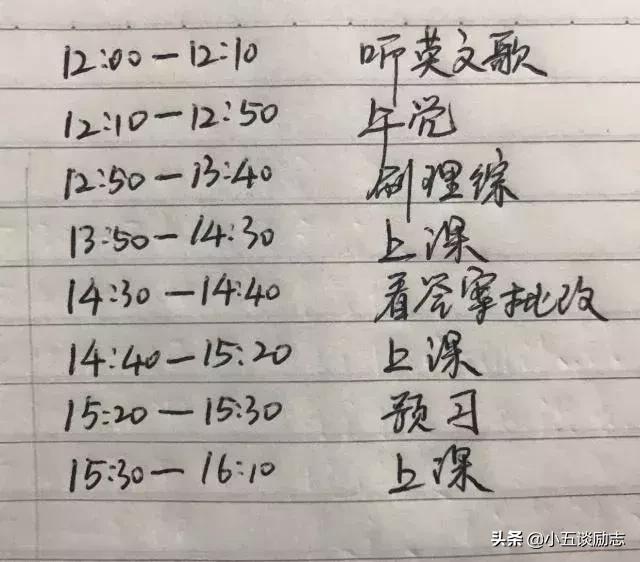 12:00—12:10 听英文歌
12:10—12:50 午觉
12:50—13:40 刷理综
13:50—14:30 上课
14:30—14:40 看答案批改
14:40—15:20 上课
15:20—15:30 预习
15:30—16:10 上课
头条 @小五谈励志